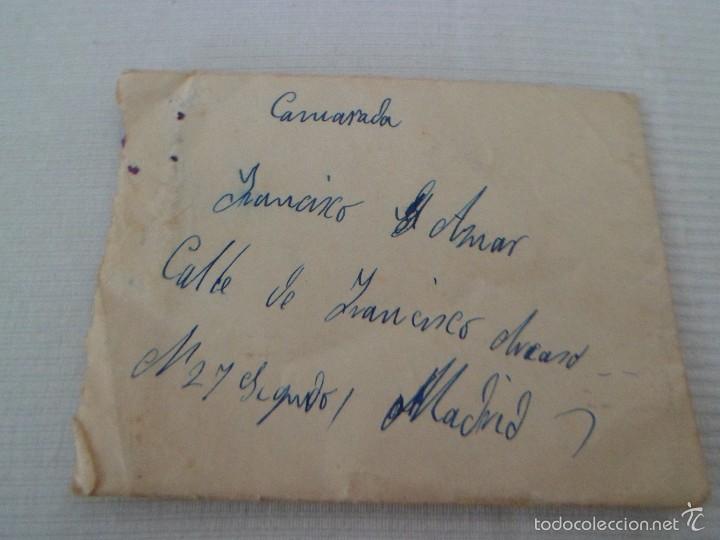 Camarada
Francisco G Aznar
Calle de Francisco
Nº 27 Segundo 1 Madrid
todocoleccion.net